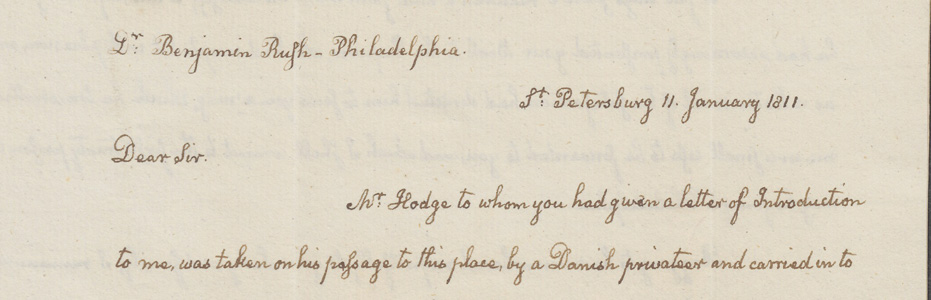 Dr. Benjamin Rush - Philadelphia.
St. Petersburg 11. January 1811.
Dear Sir.
Mr. Hodge to whom you had given a letter of Introduction
to me, was taken on his passage to this place, by a Danish privateer and carried in to